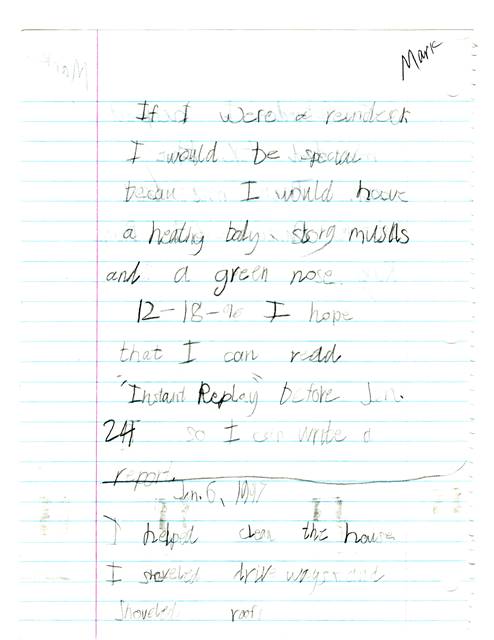 Mark
If I were a reindeer
I would be special
becau I would have
a healing body, strong musils
and a green nose.
12-18-96 I hope
that I can read
"Instant Replay" before Jan.
24 so I can write a
report.
Jan. 6, 1997
I helped clean the house
I shoveled drive ways and
shoveled roofs